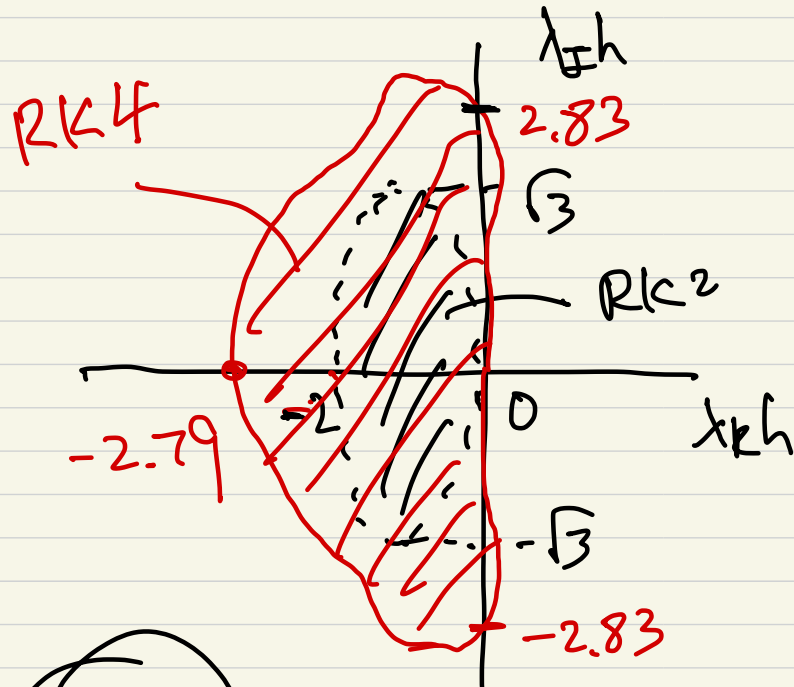 λ_I h
RK4
2.83
√3
RK2
-2
0
λ_R h
-2.79
-√3
-2.83